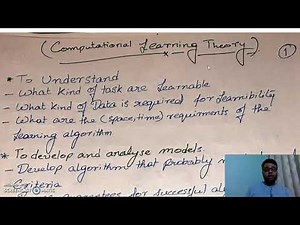 (Computational Learning Theory)
1
* To Understand
- What kind of task are learnable
- What kind of Data is required for learnibility
- What are the (space, time) requirments of the
learning algorithm
* To develop and analyse models
- Develop algorithm that probably
Criteria
for successful